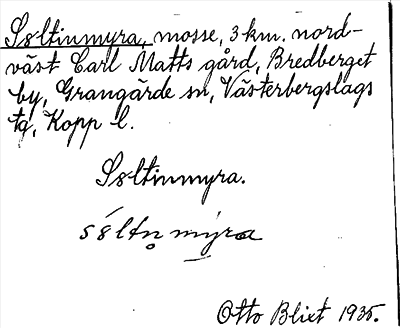 Sältinmyra, mosse, 3 km. nord-
väst Carl Matts gård, Bredberget
by, Grangärde sn, Västerbergslags
tg, Kopp l.
Sältinmyra.
Otto Blixt 1935.